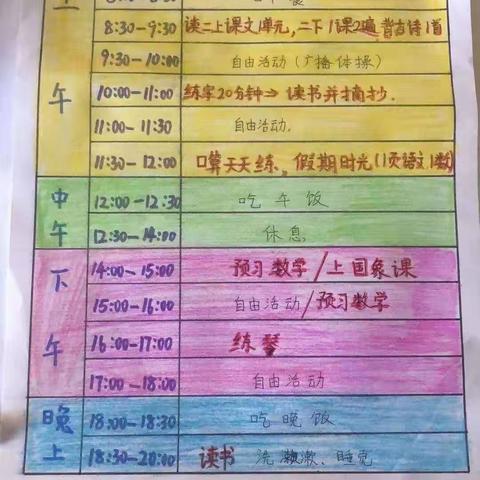 8:30-9:30 读二上课文1单元,二下1课2遍 背古诗1首
9:30-10:00 自由活动(广播体操)
午 10:00-11:00 练字20分钟⇒读书并摘抄.
11:00-11:30 自由活动.
11:30-12:00 口算天天练,假期时光(1页语文1数)
中午 12:00-12:30 吃午饭
12:30-14:00 休息
下午 14:00-15:00 预习数学/上国象课
15:00-16:00 自由活动/预习数学
16:00-17:00 练琴
17:00-18:00 自由活动
晚上 18:00-18:30 吃晚饭
18:30-20:00 读书 洗漱、睡觉